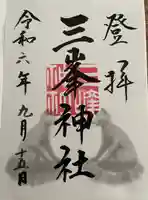 登拝
三峯神社
令和六年九月十五日